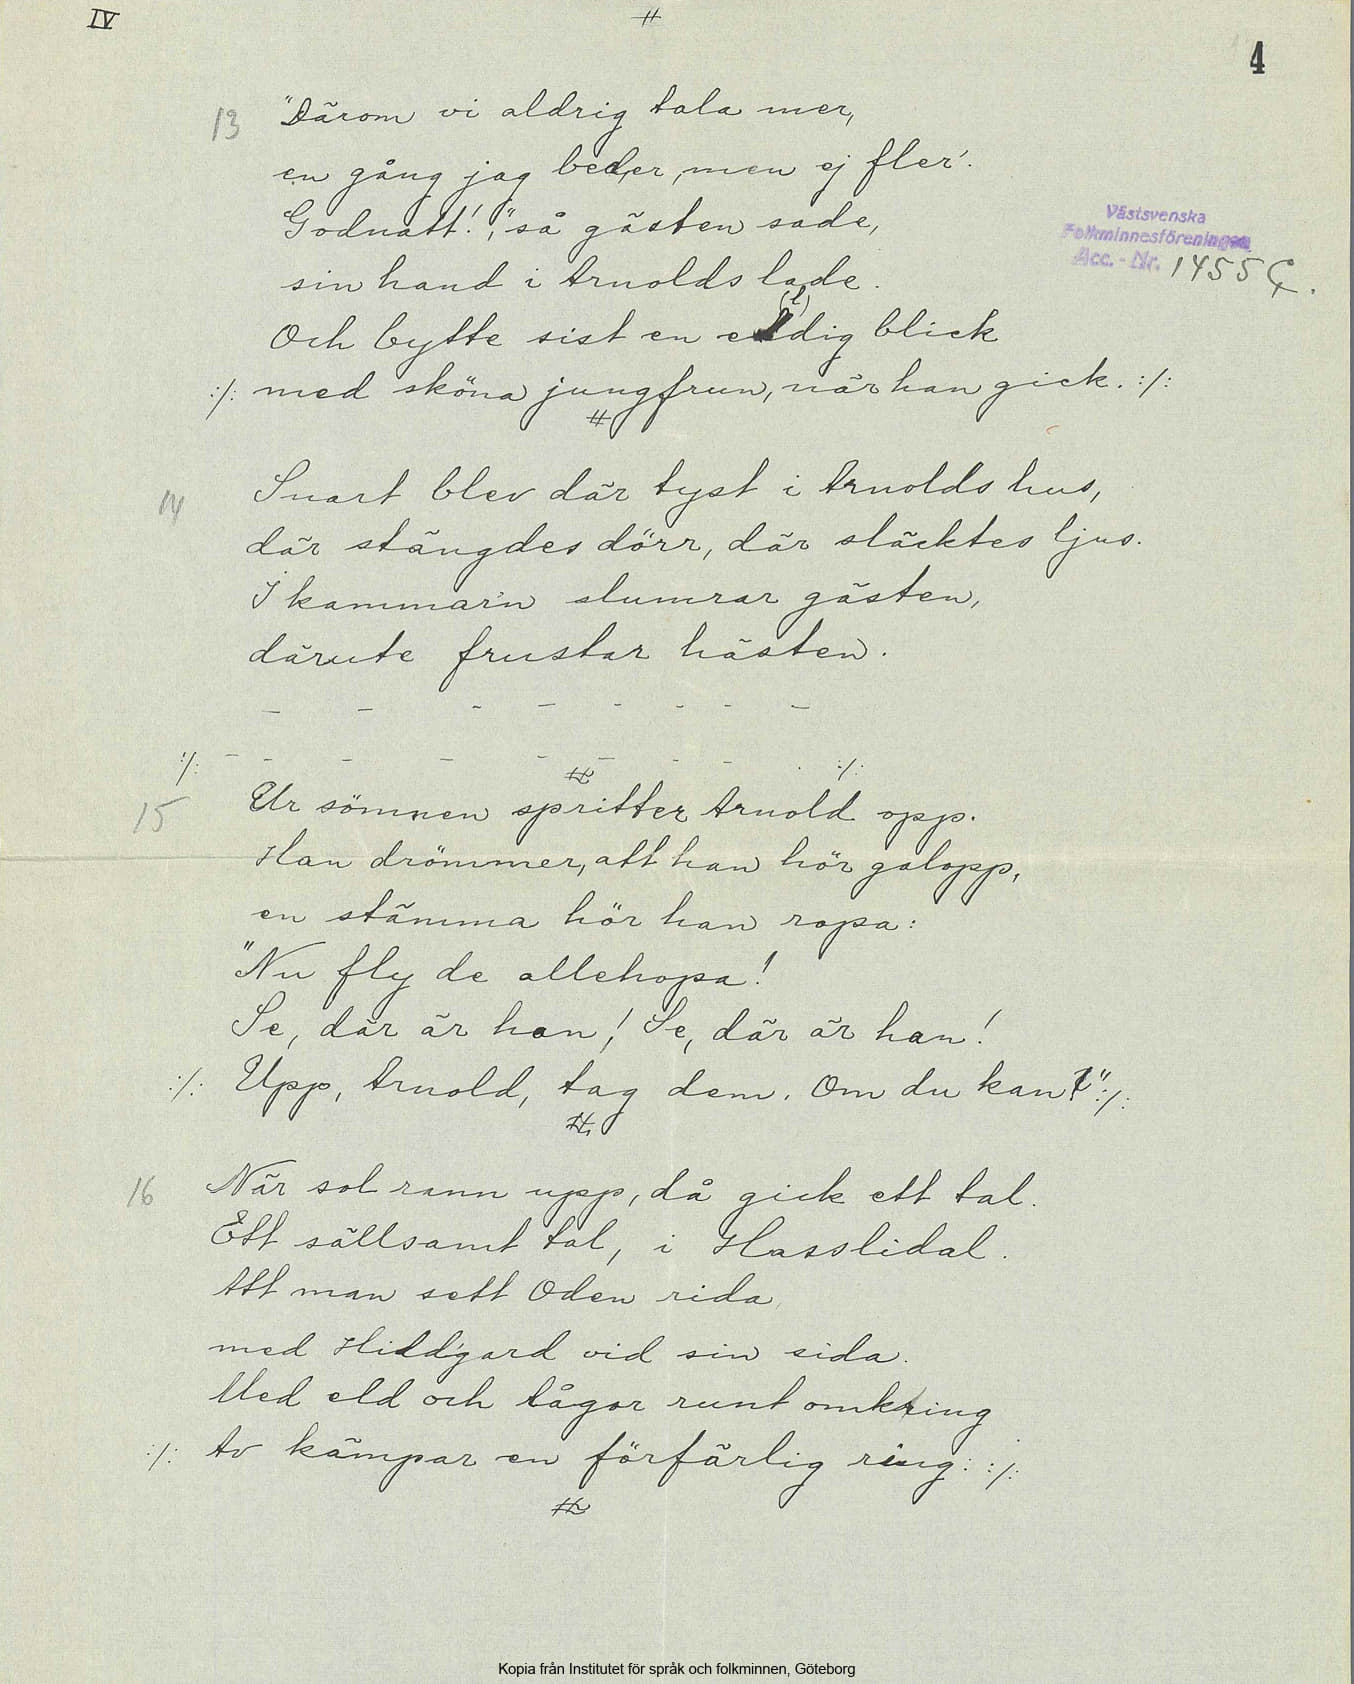 IV
#
4
13 "Därom vi aldrig tala mer,
en gång jag beder, men ej fler'.
Godnatt!," så gästen sade,
Västsvenska
Folkminnesföreningen
Acc. - Nr. 1455 G.
sin hand i Arnolds lade.
(l)
Och bytte sist en eldig blick
:/: med sköna jungfrun, när han gick. :/:
#
14 Snart blev där tyst i Arnolds hus,
där stängdes dörr, där släcktes ljus.
I kammar'n slumrar gästen,
därute frustar hästen.
- - - - - - - -
:/: - - - - - - - - . :/:
#
15 Ur sömnen spritter Arnold opp.
Han drömmer, att han hör galopp,
en stämma hör han ropa:
"Nu fly de allehopa!
Se, där är han! Se, där är han!
:/: Upp, Arnold, tag dem. Om du kan!" :/:
#
16 När sol rann upp, då gick ett tal.
Ett sällsamt tal, i Hasslidal.
Att man sett Oden rida
med Hildgard vid sin sida.
Med eld och lågor runt omkring
:/: Av kämpar en förfärlig ring. :/:
#
Kopia från Institutet för språk och folkminnen, Göteborg